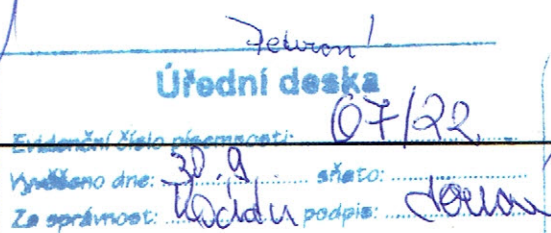 Úřední deska
Evidenční číslo písemnosti: 07/22
Vyvěšeno dne: 30.9. sňato:
Za správnost: podpis: